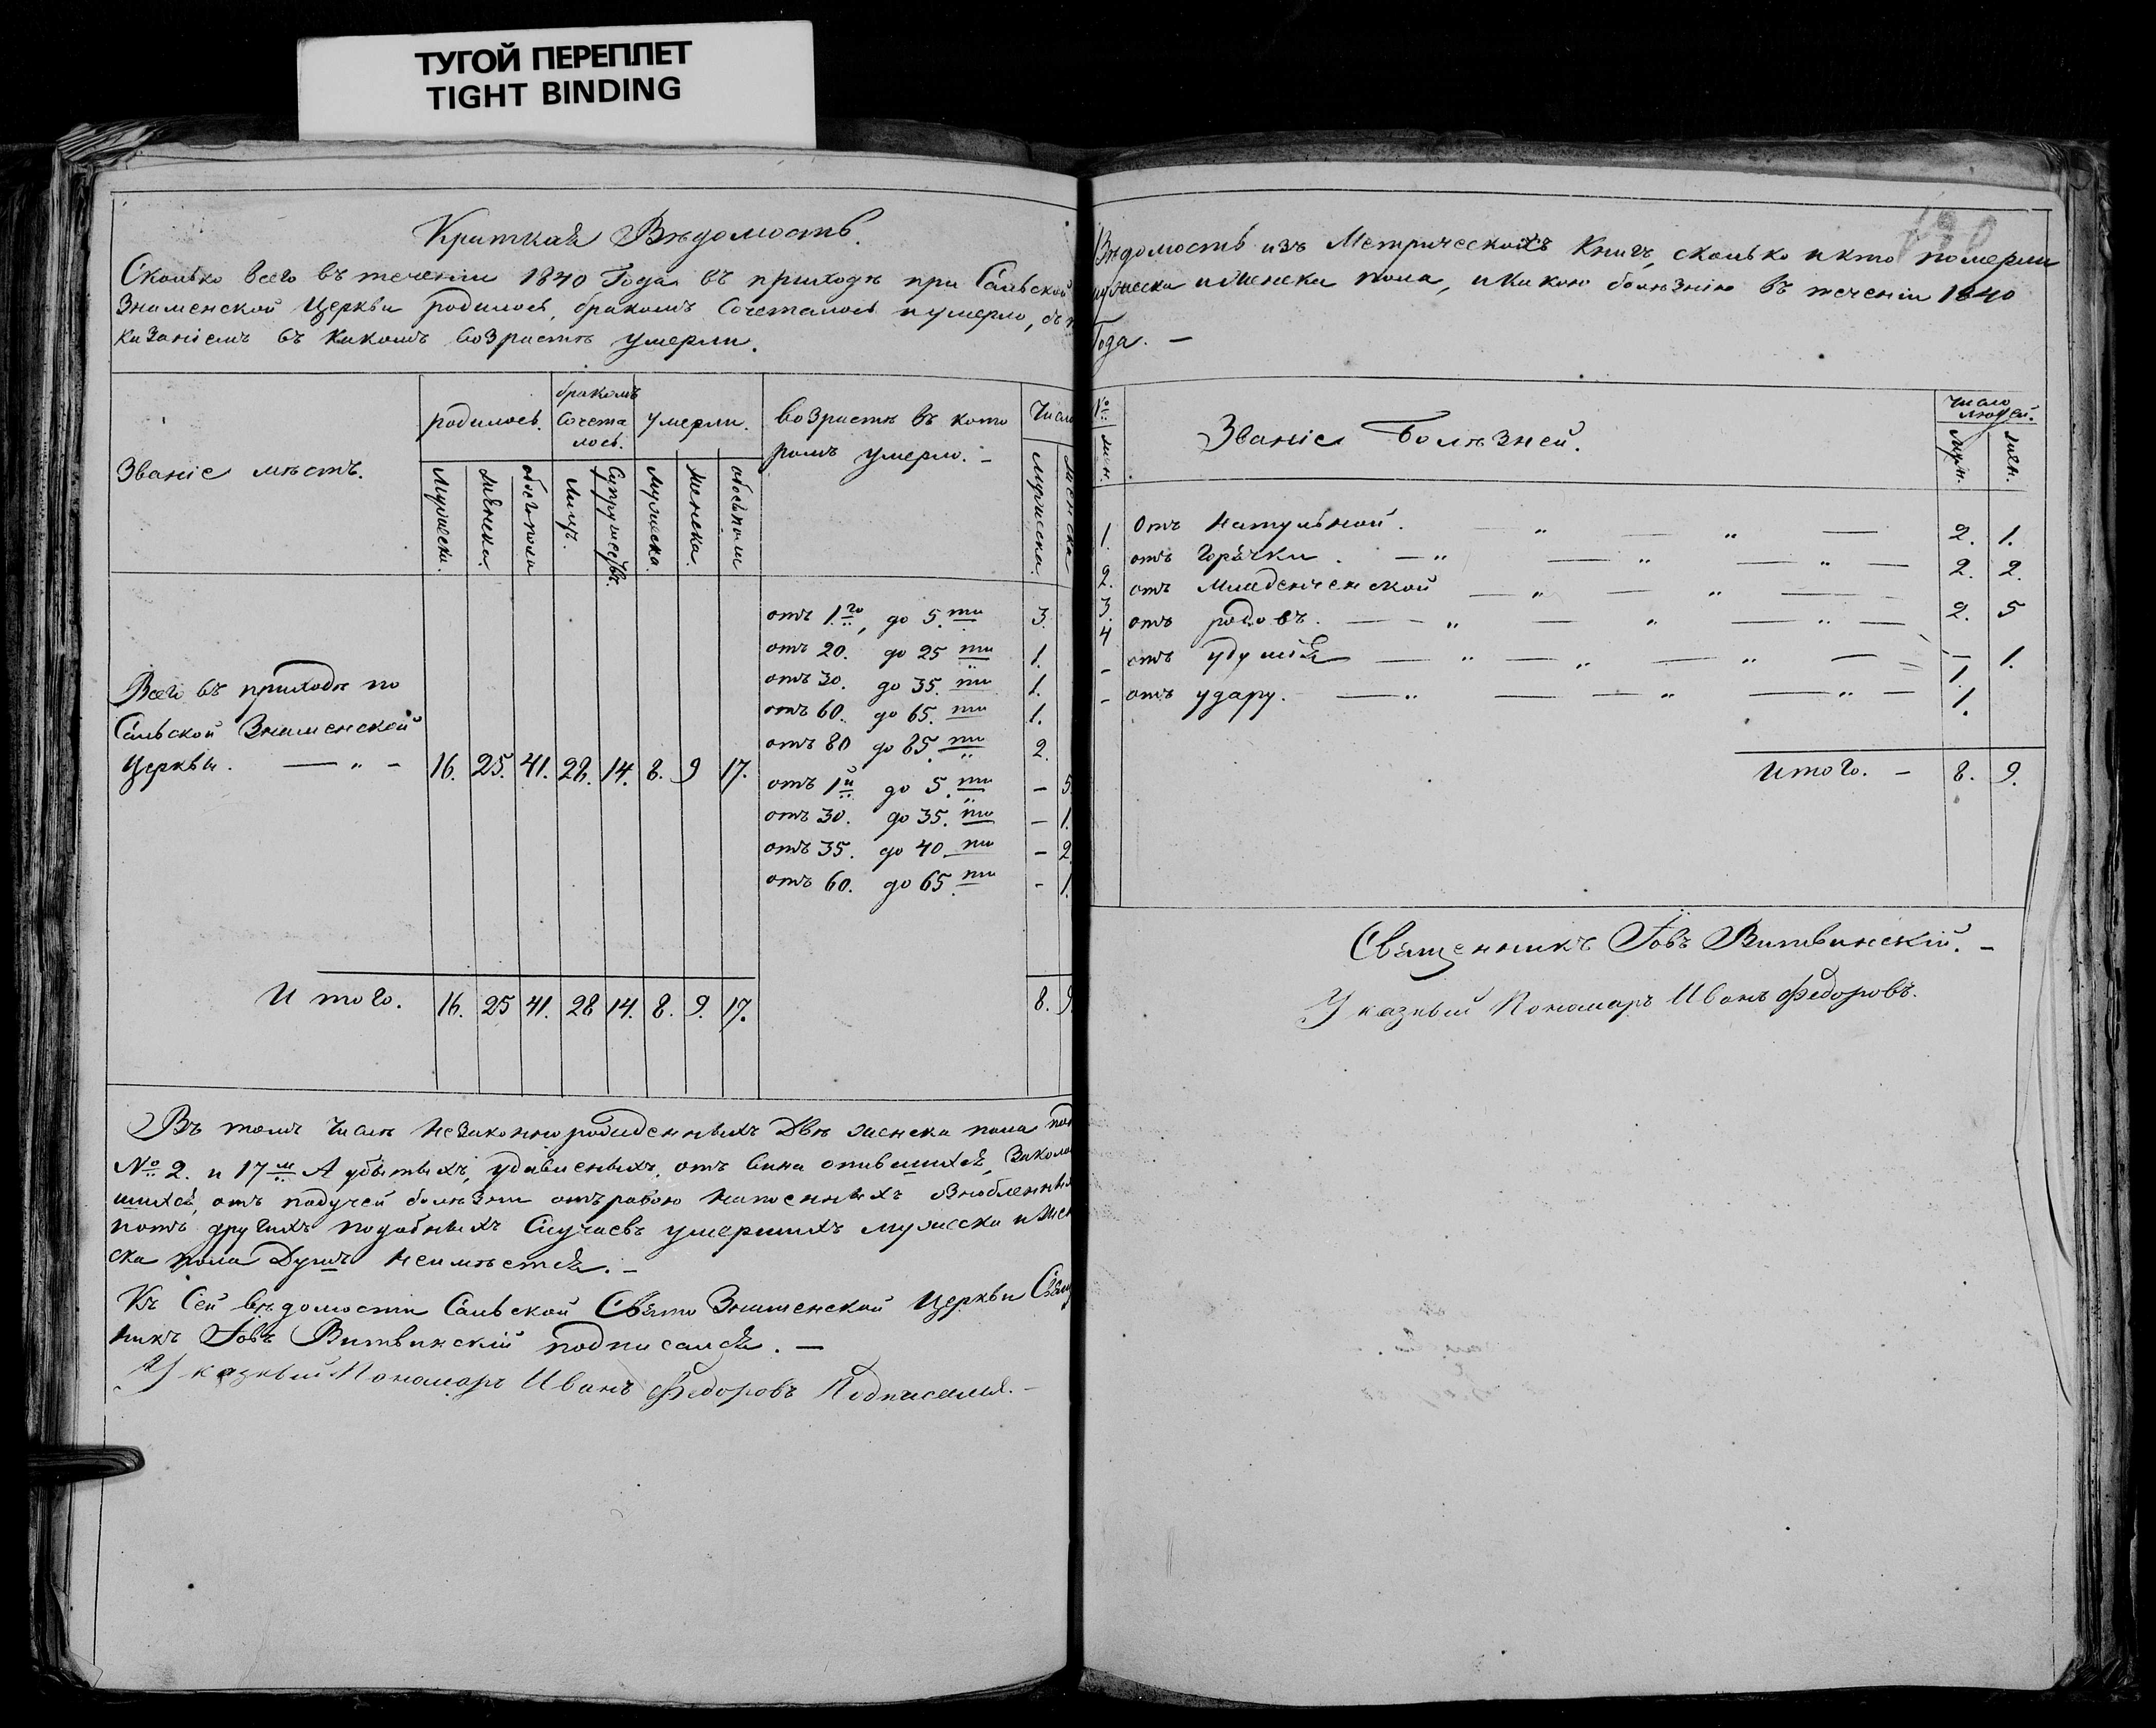 ТУГОЙ ПЕРЕПЛЕТ
TIGHT BINDING
Краткая Вѣдомость.
Сколько всего въ теченіи 1840 Года въ приходѣ при Сальской
Знаменской Церкви родилось, бракомъ сочеталось и умерло, съ
казаніемъ въ какомъ возрастѣ умерли.
Званіе мѣстъ.
родилось.
бракомъ
сочета
лось.
умерли.
возрастѣ въ кото
ромъ умерло. –
Число
Мужеска.
Женска.
обоего пола
Лицъ.
Супружествъ.
Мужеска.
Женска.
обоего пола
Мужеска.
Женска
отъ 1го, до 5. ти 3.
отъ 20. до 25 ти 1.
отъ 30. до 35. ти 1.
отъ 60. до 65. ти 1.
отъ 80 до 85. ти 2.
Всего въ приходѣ по
Сальской Знаменской
Церкви. — „ – 16. 25. 41. 28. 14. 8. 9 17.
отъ 1й до 5. ти – 5.
отъ 30. до 35. ти – 1.
отъ 35. до 40. ти – 2.
отъ 60. до 65. ти – 1.
Итого. 16. 25 41. 28 14. 8. 9. 17. 8. 9
Въ томъ числѣ незаконнорожденныхъ Двѣ женска пола
№ 2. и 17м А убитыхъ, удавленыхъ, отъ вина опившихся,
шихся, отъ падучей болѣзни отъравою напоенныхъ
ионъ другихъ подобныхъ Случаевъ умершихъ мужеска и жен
ска пола Душъ неимѣется. –
Къ Сей вѣдомости Сальской Свято Знаменской Церкви Свящ
никъ Іовъ Витвинскій подписался. —
Указный Пономарь Иванъ Федоровъ Подписался. –
190
Вѣдомость изъ Метрическойхъ Книгъ, сколько и кто померли
мужеска и женска пола, и какою болѣзнію въ теченіи 1840
Года. –
№
Званіе Болѣзней.
Число
людей.
муж.
жен.
1. Отъ Натульной. — „ — „ — 2. 1.
2. отъ Горячки. — „ — „ — „ — 2. 2.
3. отъ Младенческой — „ — „ — 2. 5
4 отъ родовъ. — „ — „ — „ — – 1.
– отъ удушья — „ — „ — „ — 1.
– отъ удару. — „ — „ — „ — 1.
Итого. – 8. 9.
Священникъ Іовъ Витвинскій. –
Указный Пономарь Иванъ Федоровъ.